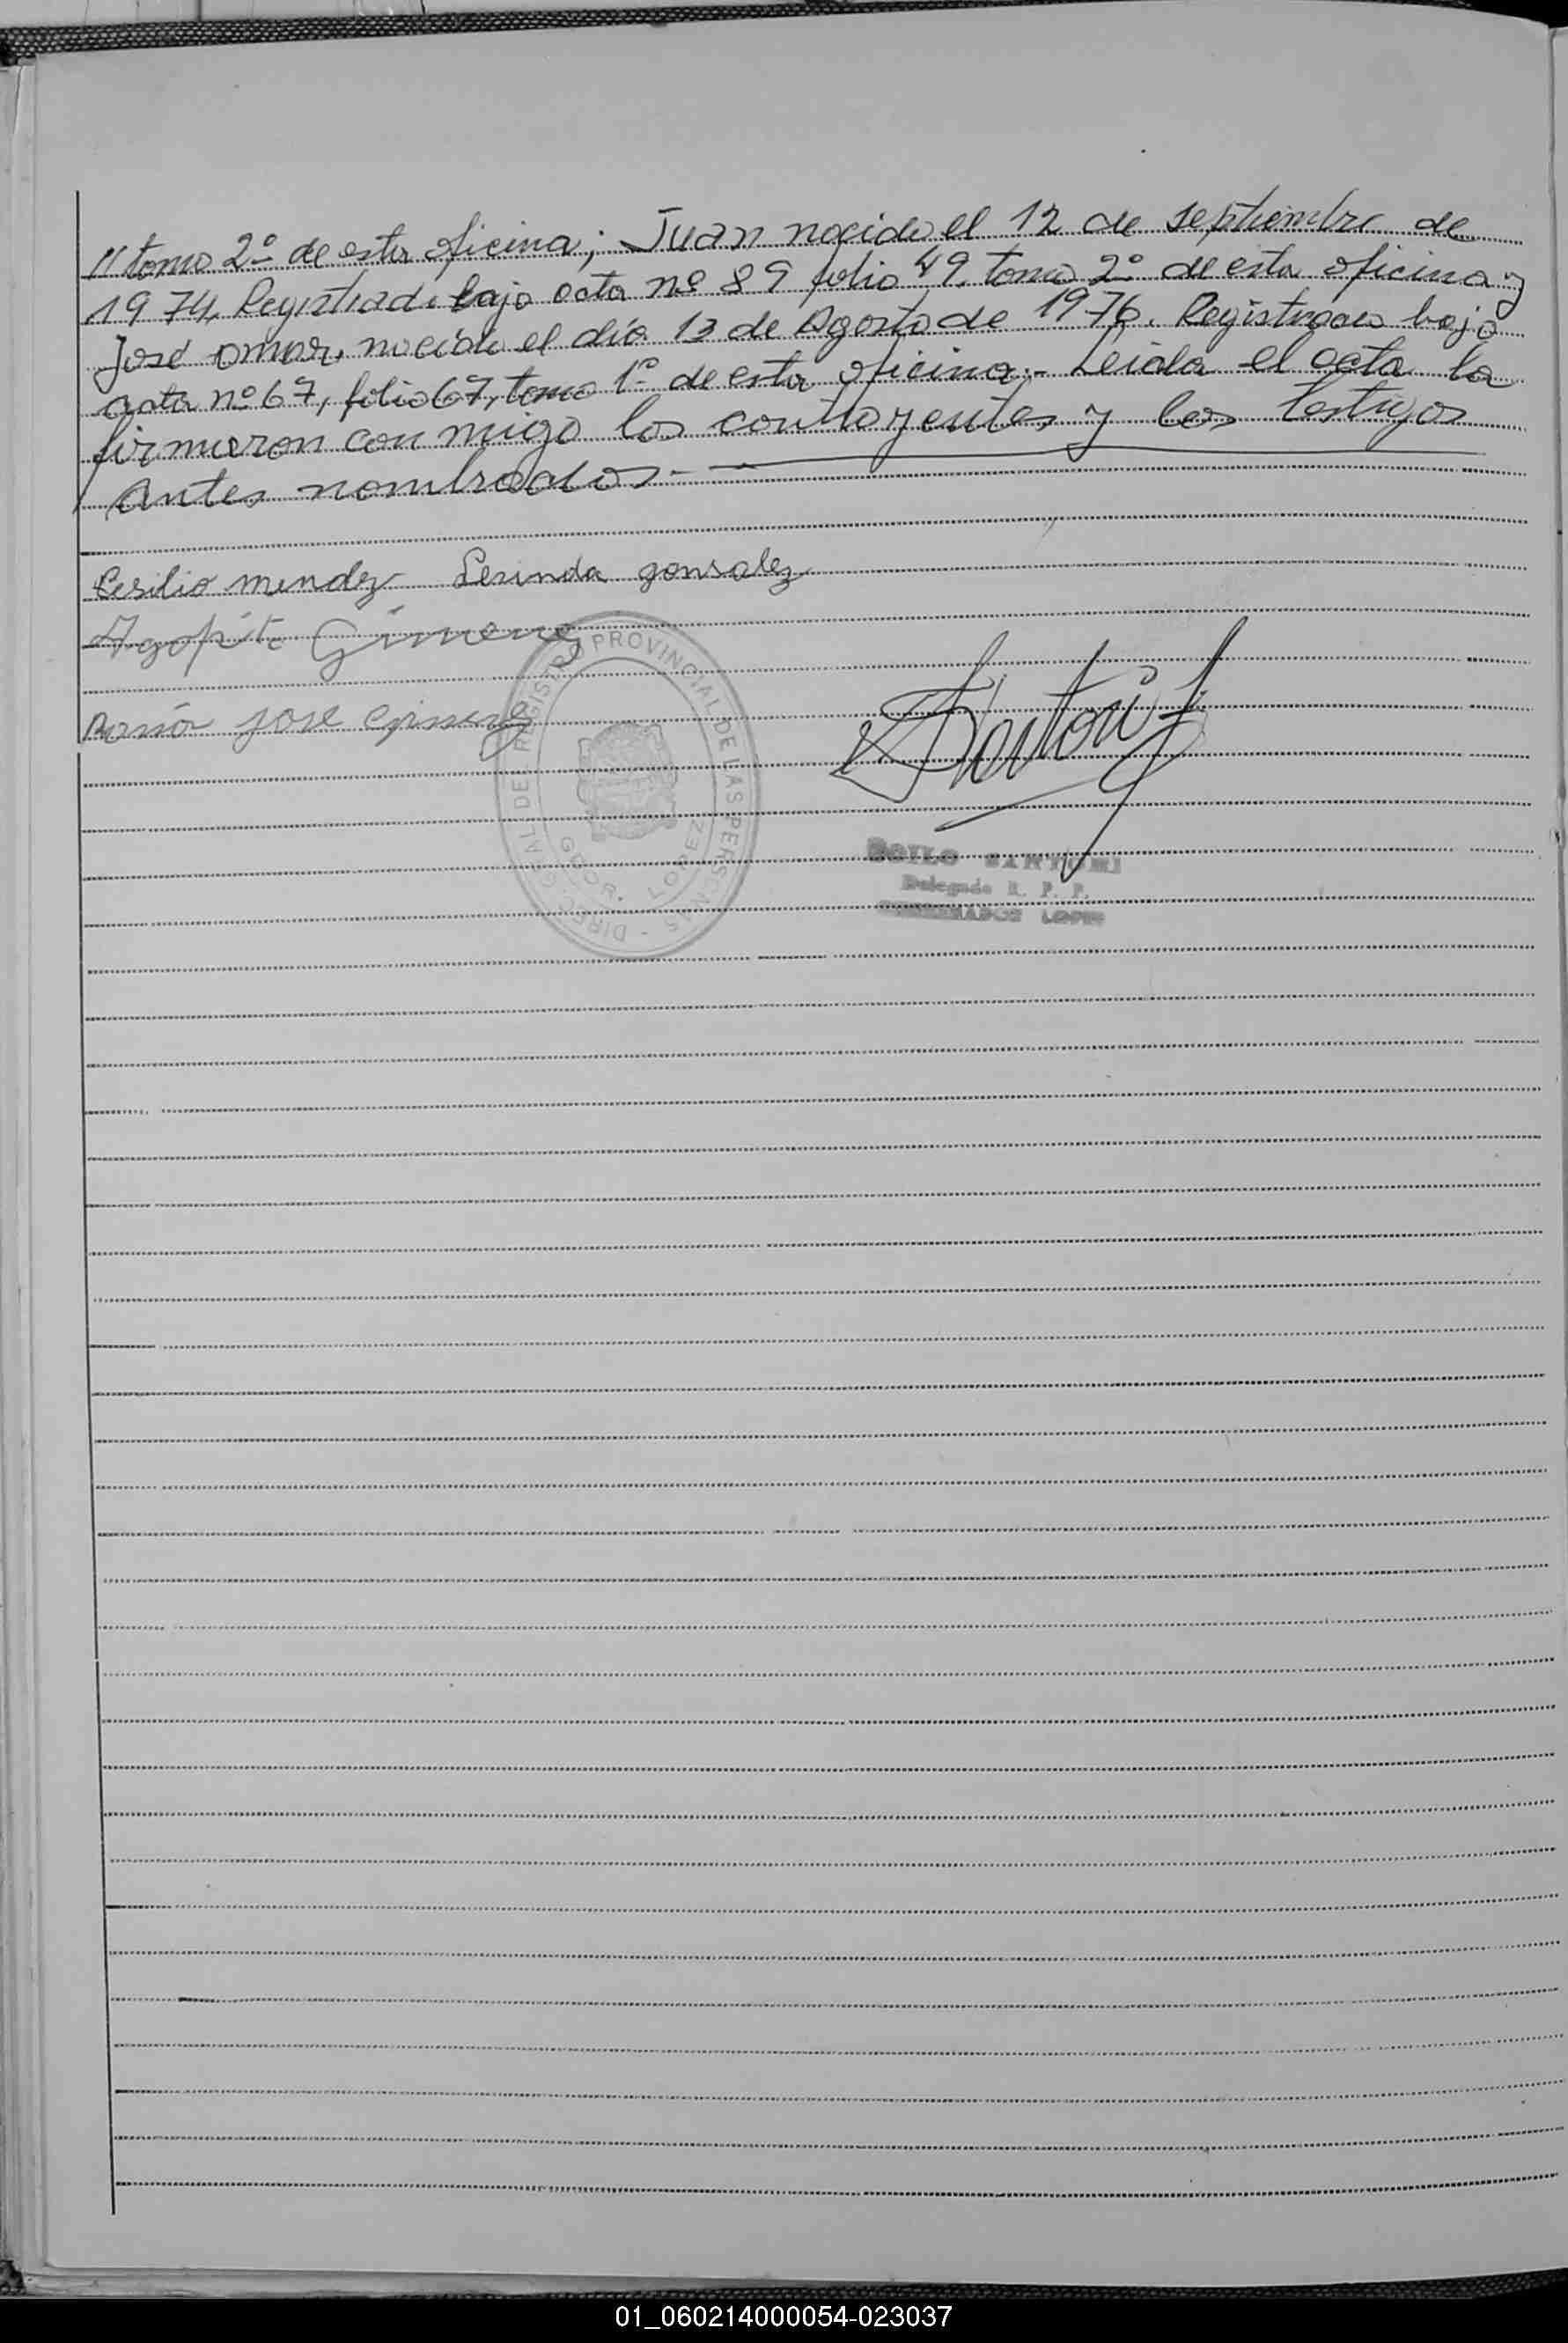 // tomo 2º de esta oficina; Juan nacido el 12 de septiembre de
1974, Registrado bajo acta nº 89 folio 49, tomo 2º de esta oficina y
José omar, nacido el día 13 de Agosto de 1976. Registrado bajo
acta nº 67, folio 67, tomo 1º de esta oficina.- Leida el acta la
firmaron conmigo los contrayentes y los testigos
Antes nombrados.-
Cesilio mendez Lerinda gonsalez
Agapito Gimenez
Ramón jose gimenez
DIRECC. GRAL DEL REGISTRO PROVINCIAL DE LAS PERSONAS -
GDOR. LOPEZ
SARTORI
Delegado R. P. P.
GOBERNADOR LOPEZ
01_060214000054-023037